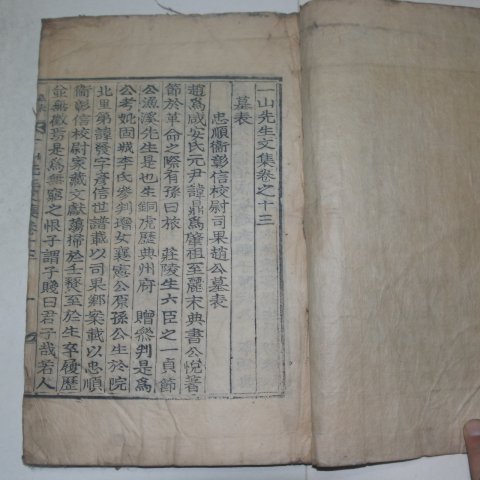 一山先生文集卷之十三
墓表
忠順衛彰信校尉司果趙公墓表
趙爲咸安氏元尹諱鼎爲肇祖至麗末典書公悅著
節於革命之際有孫曰旅 莊陵生六臣之一貞節
公漁溪先生是也生銅虎歷典州府 贈參判是爲
公考妣固城李氏參判增女襄憲公原孫公生於院
北里第諱發字彥信世譜載以司果鄕案載以忠順
衛彰信校尉家藏文獻蕩掃於壬燹至於生卒履歷
並無徵焉是爲無窮之恨子謂子賤曰君子哉若人